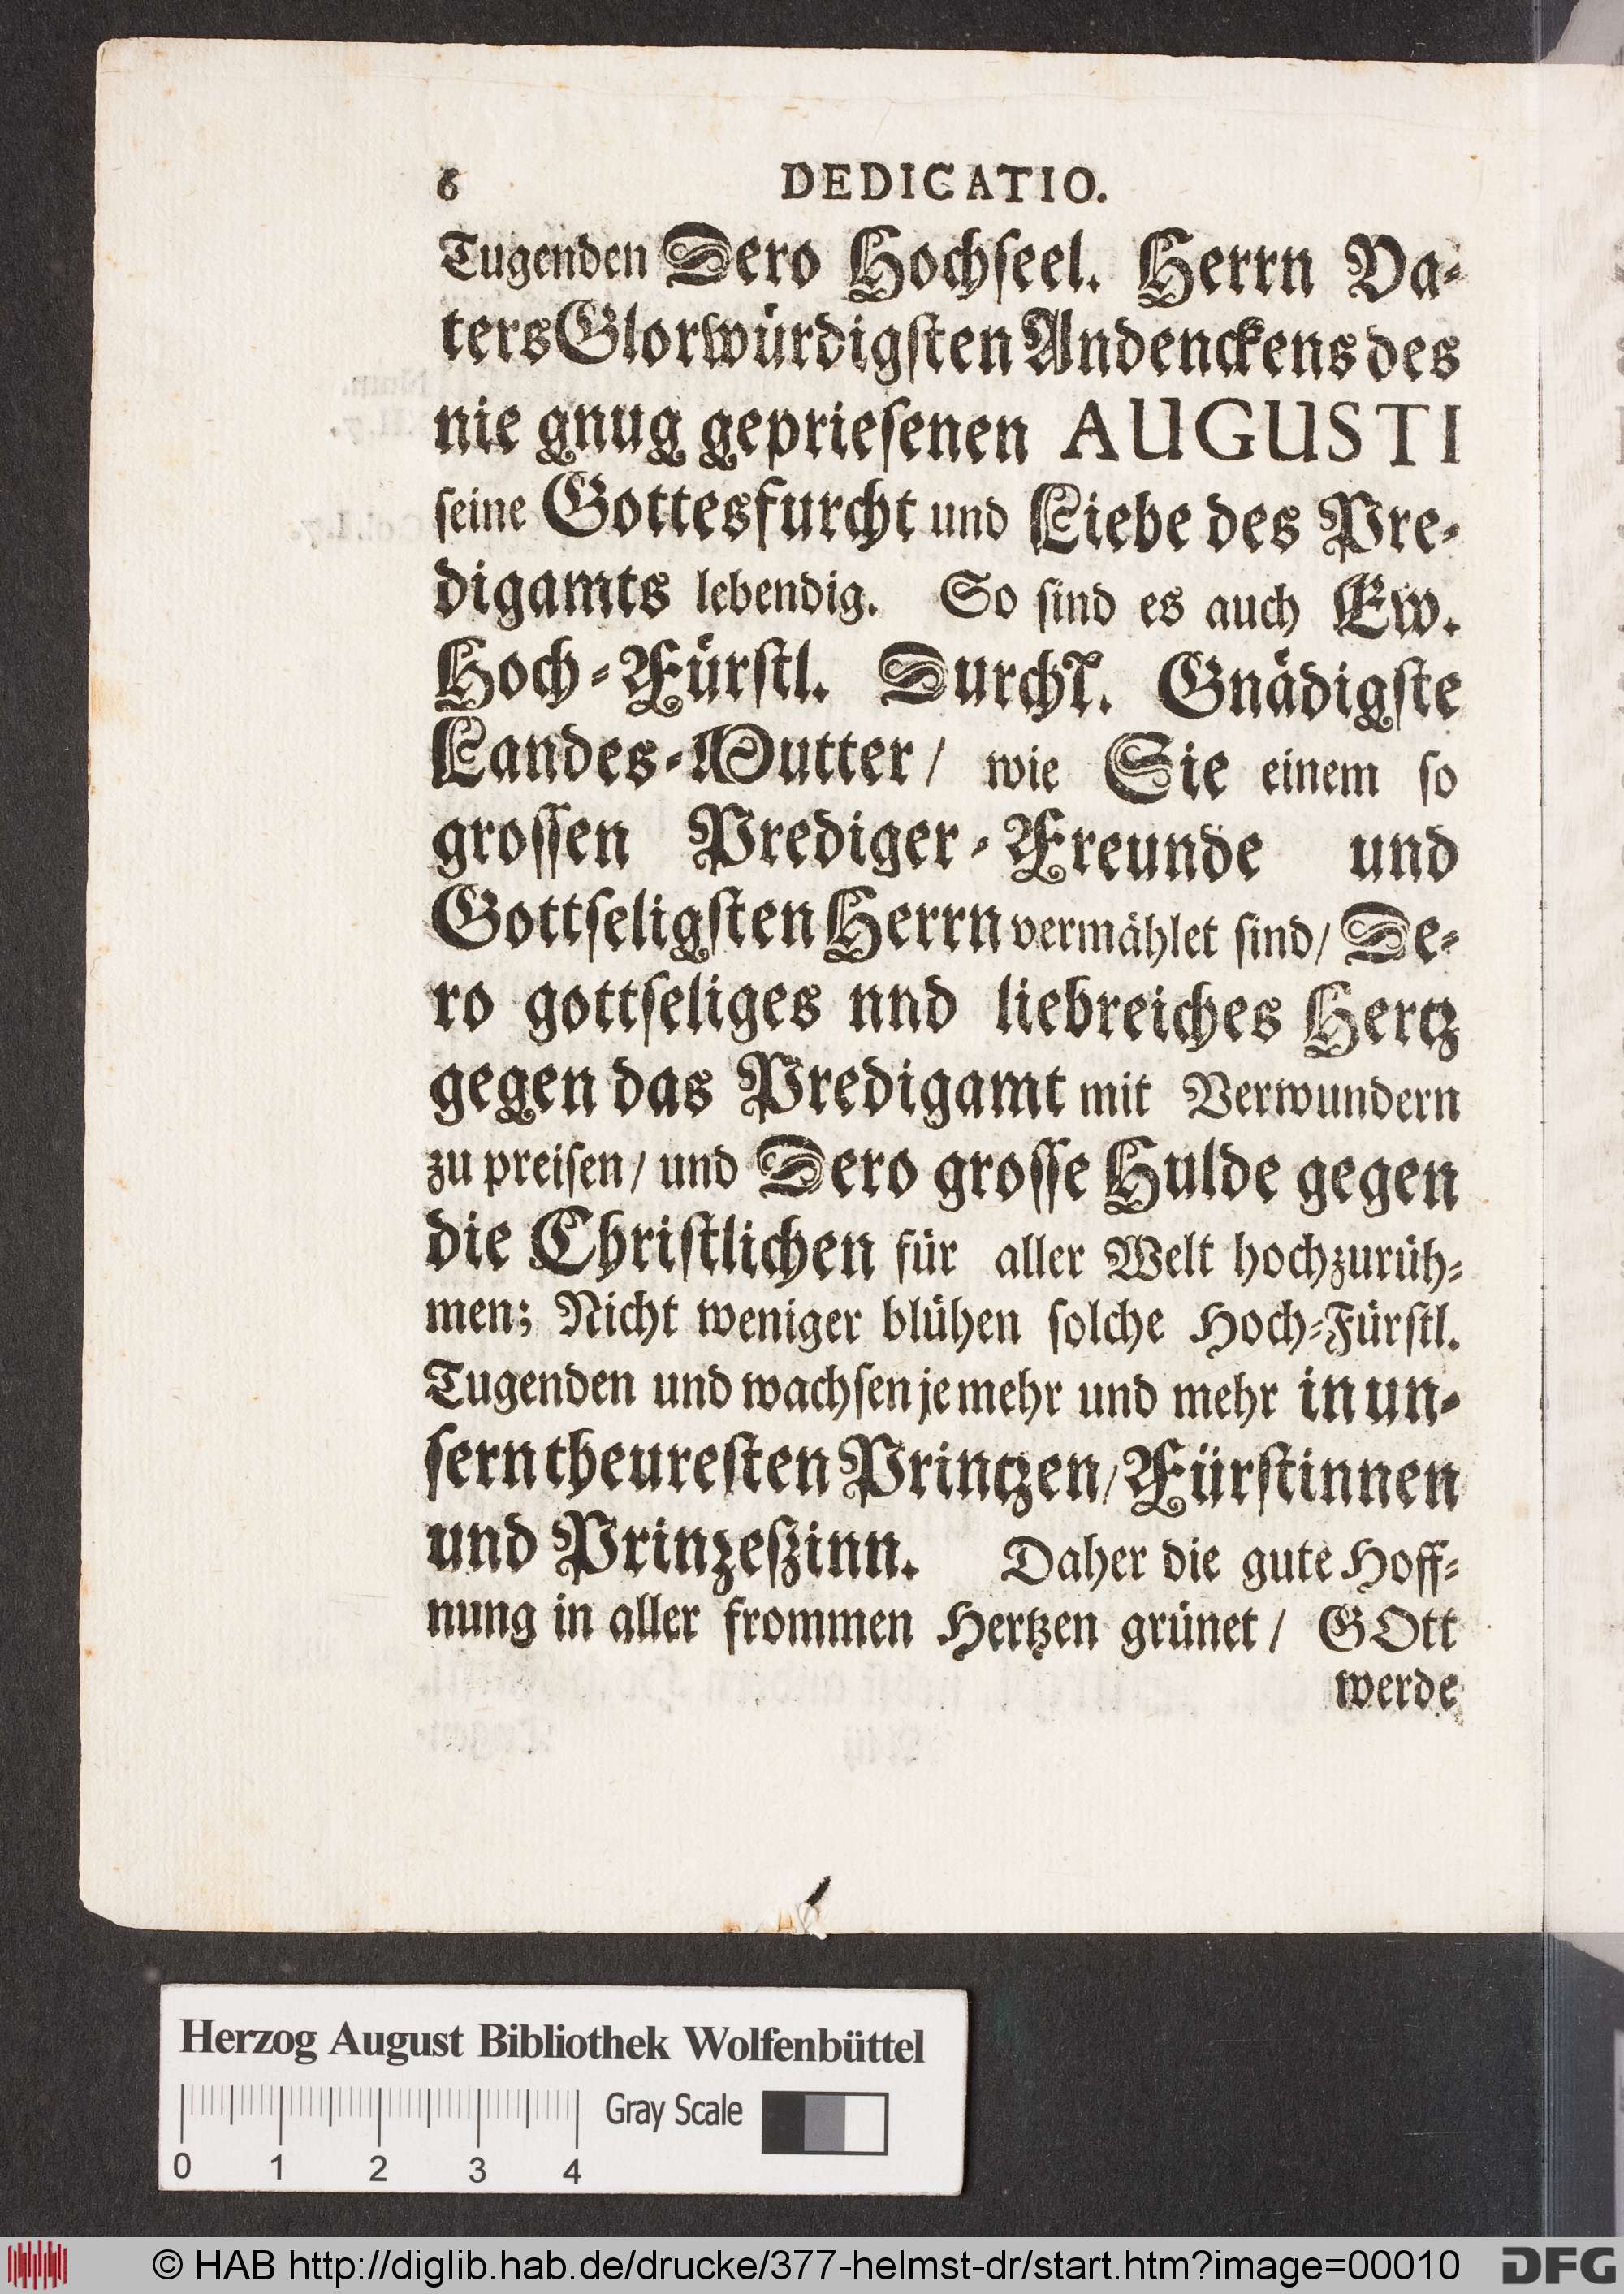 6 DEDICATIO.
Tugenden Dero Hochſeel. Herrn Va-
ters Glorwürdigſten Andenckens des
nie gnug geprieſenen AUGUSTI
ſeine Gottesfurcht und Liebe des Pre-
digamts lebendig. So ſind es auch Ew.
Hoch-Fürſtl. Durchl. Gnädigſte
Landes-Mutter/ wie Sie einem ſo
groſſen Prediger-Freunde und
Gottſeligſten Herrn vermählet ſind/ De-
ro gottſeliges nnd liebreiches Hertz
gegen das Predigamt mit Verwundern
zu preiſen/ und Dero groſſe Hulde gegen
die Chriſtlichen für aller Welt hochzurüh-
men; Nicht weniger blühen ſolche Hoch-Fürſtl.
Tugenden und wachſen je mehr und mehr in un-
ſern theureſten Printzen/ Fürſtinnen
und Prinzeſzinn. Daher die gute Hoff-
nung in aller frommen Hertzen grünet/ GOtt
werde
Herzog August Bibliothek Wolfenbüttel
Gray Scale
0 1 2 3 4
© HAB http://diglib.hab.de/drucke/377-helmst-dr/start.htm?image=00010
DFG